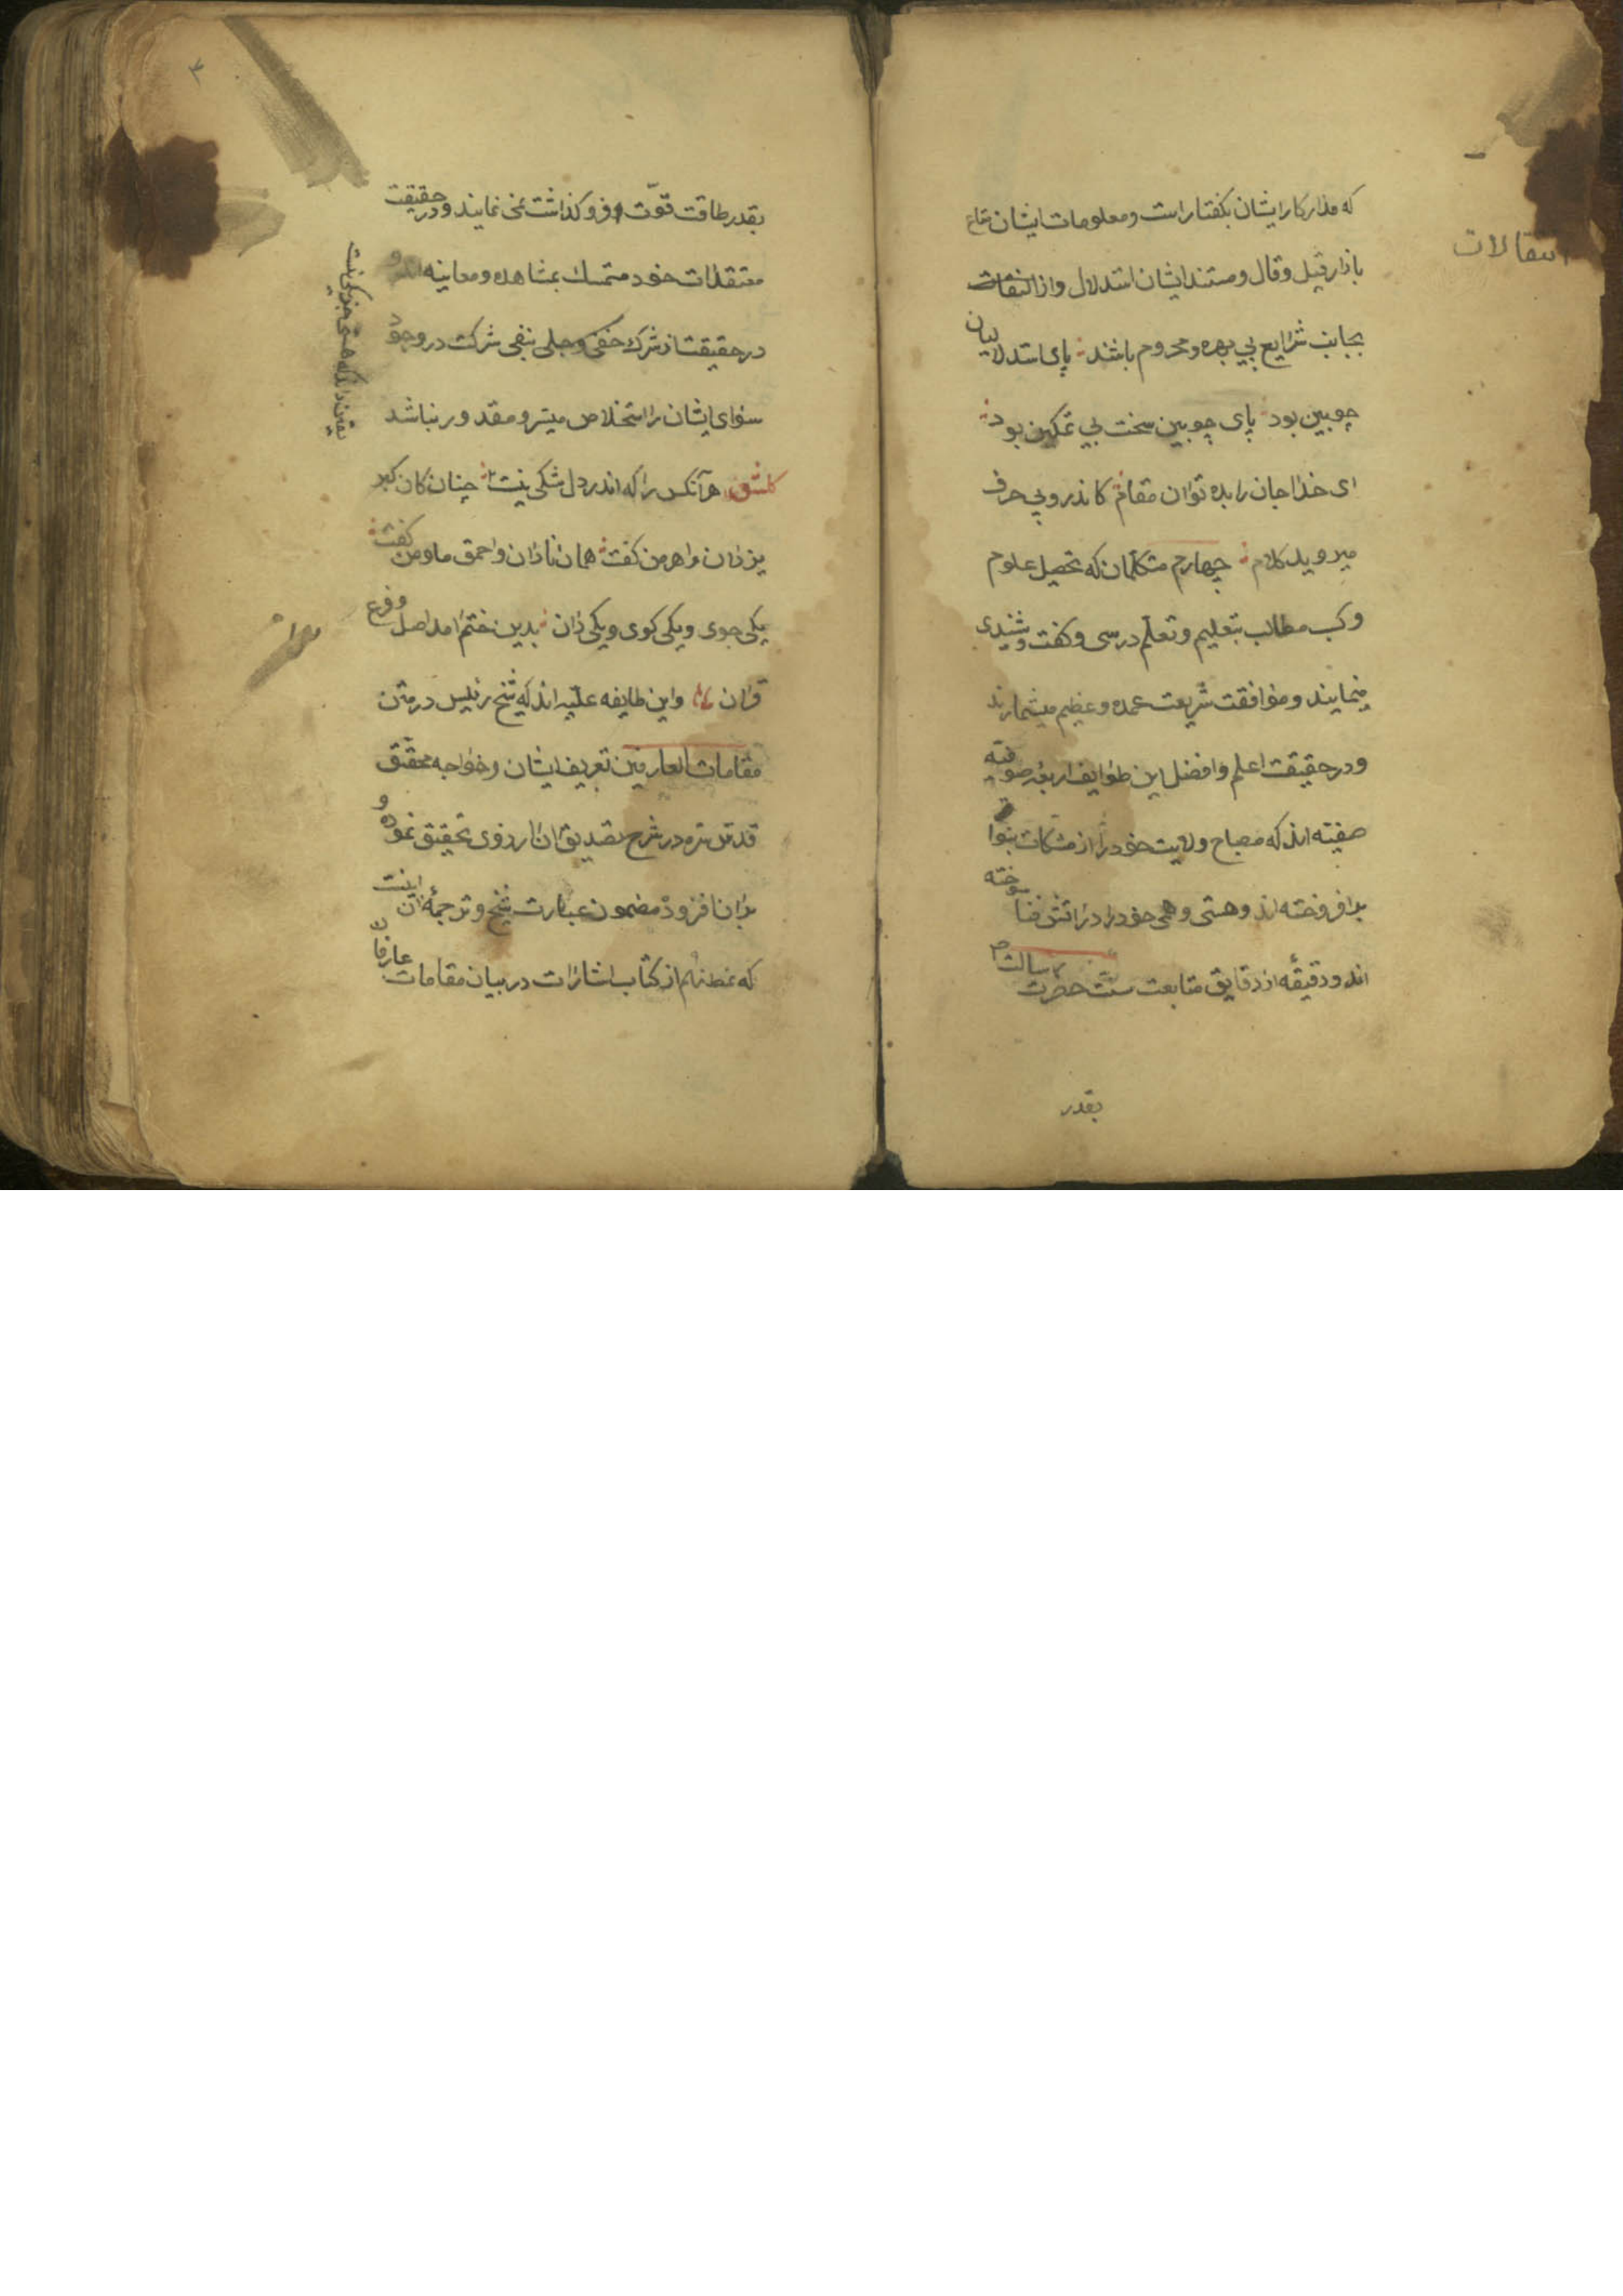 که مدار کار ایشان بکفتار است و معلومات ایشان متاع
بازار قیل و قال و مستند ایشان استدلال و از التفات
بجانب شرایع بی بهره و محروم باشند پای استدلالیان
چوبین بود پای چوبین سخت بی تمکین بود
ای خدا جان را بده توان مقام کاندرو بی حرف
میروید کلام چهارم متکلمان که تحصیل علوم
و کسب مطالب بتعلیم و تعلم درسی و کفت و شنیدی
مینمایند و موافقت شریعت عمده و عظیم میشمارند
و در حقیقت اعلم و افضل این طوایف اربعه صوفیه
صفیّه اند که مصباح ولایت خود را از مشکات نبوا
بدافروخته اند و هستی وهمی خود را در اتش فنا سوخته
اند و دقیقه از دقایق متابعت سنّت حضرت رسالت ص
بقدر
انتقالات
بقدر طاقت قوّت فرو کذاشت نمی نمایند و در حقیقت
معتقدات خود متمسك بمشاهده و معاینه اند و
در حقیقت از شرك خفی و جلی بنفی شرکت در وجود
سوای ایشان را استخلاص میسر و مقدور نباشد
کلشن هر آنکس را که اندر دل شکی نیست
یقین داند که هستی جز یکی نیست
چنان کان کبر
یزدان و اهرمن کفت همان نادان و احمق ما و من کفت
یکی جوی و یکی کوی و یکی دان بدین ختم امد اصل و فرع
قران و این طایفه علیّه اند که شیخ رئیس در متن
مقامات العارفین تعریف ایشان و خواجه محقّق
قدس سره در شرح تصدیق ان از روی تحقیق نموده و
بران افزود مضمون عبارت شیخ و ترجمهٔ ان اینست
که نمط نهم از کتاب اشارات در بیان مقامات عارفان